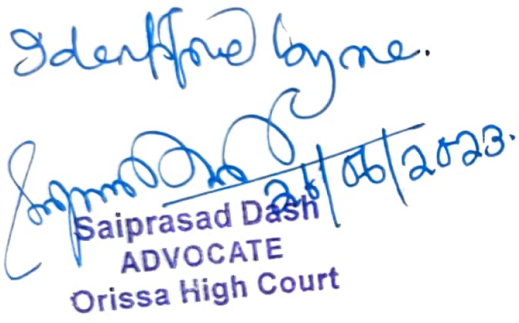 Identified by me.
26/06/2023.
Saiprasad Dash
ADVOCATE
Orissa High Court